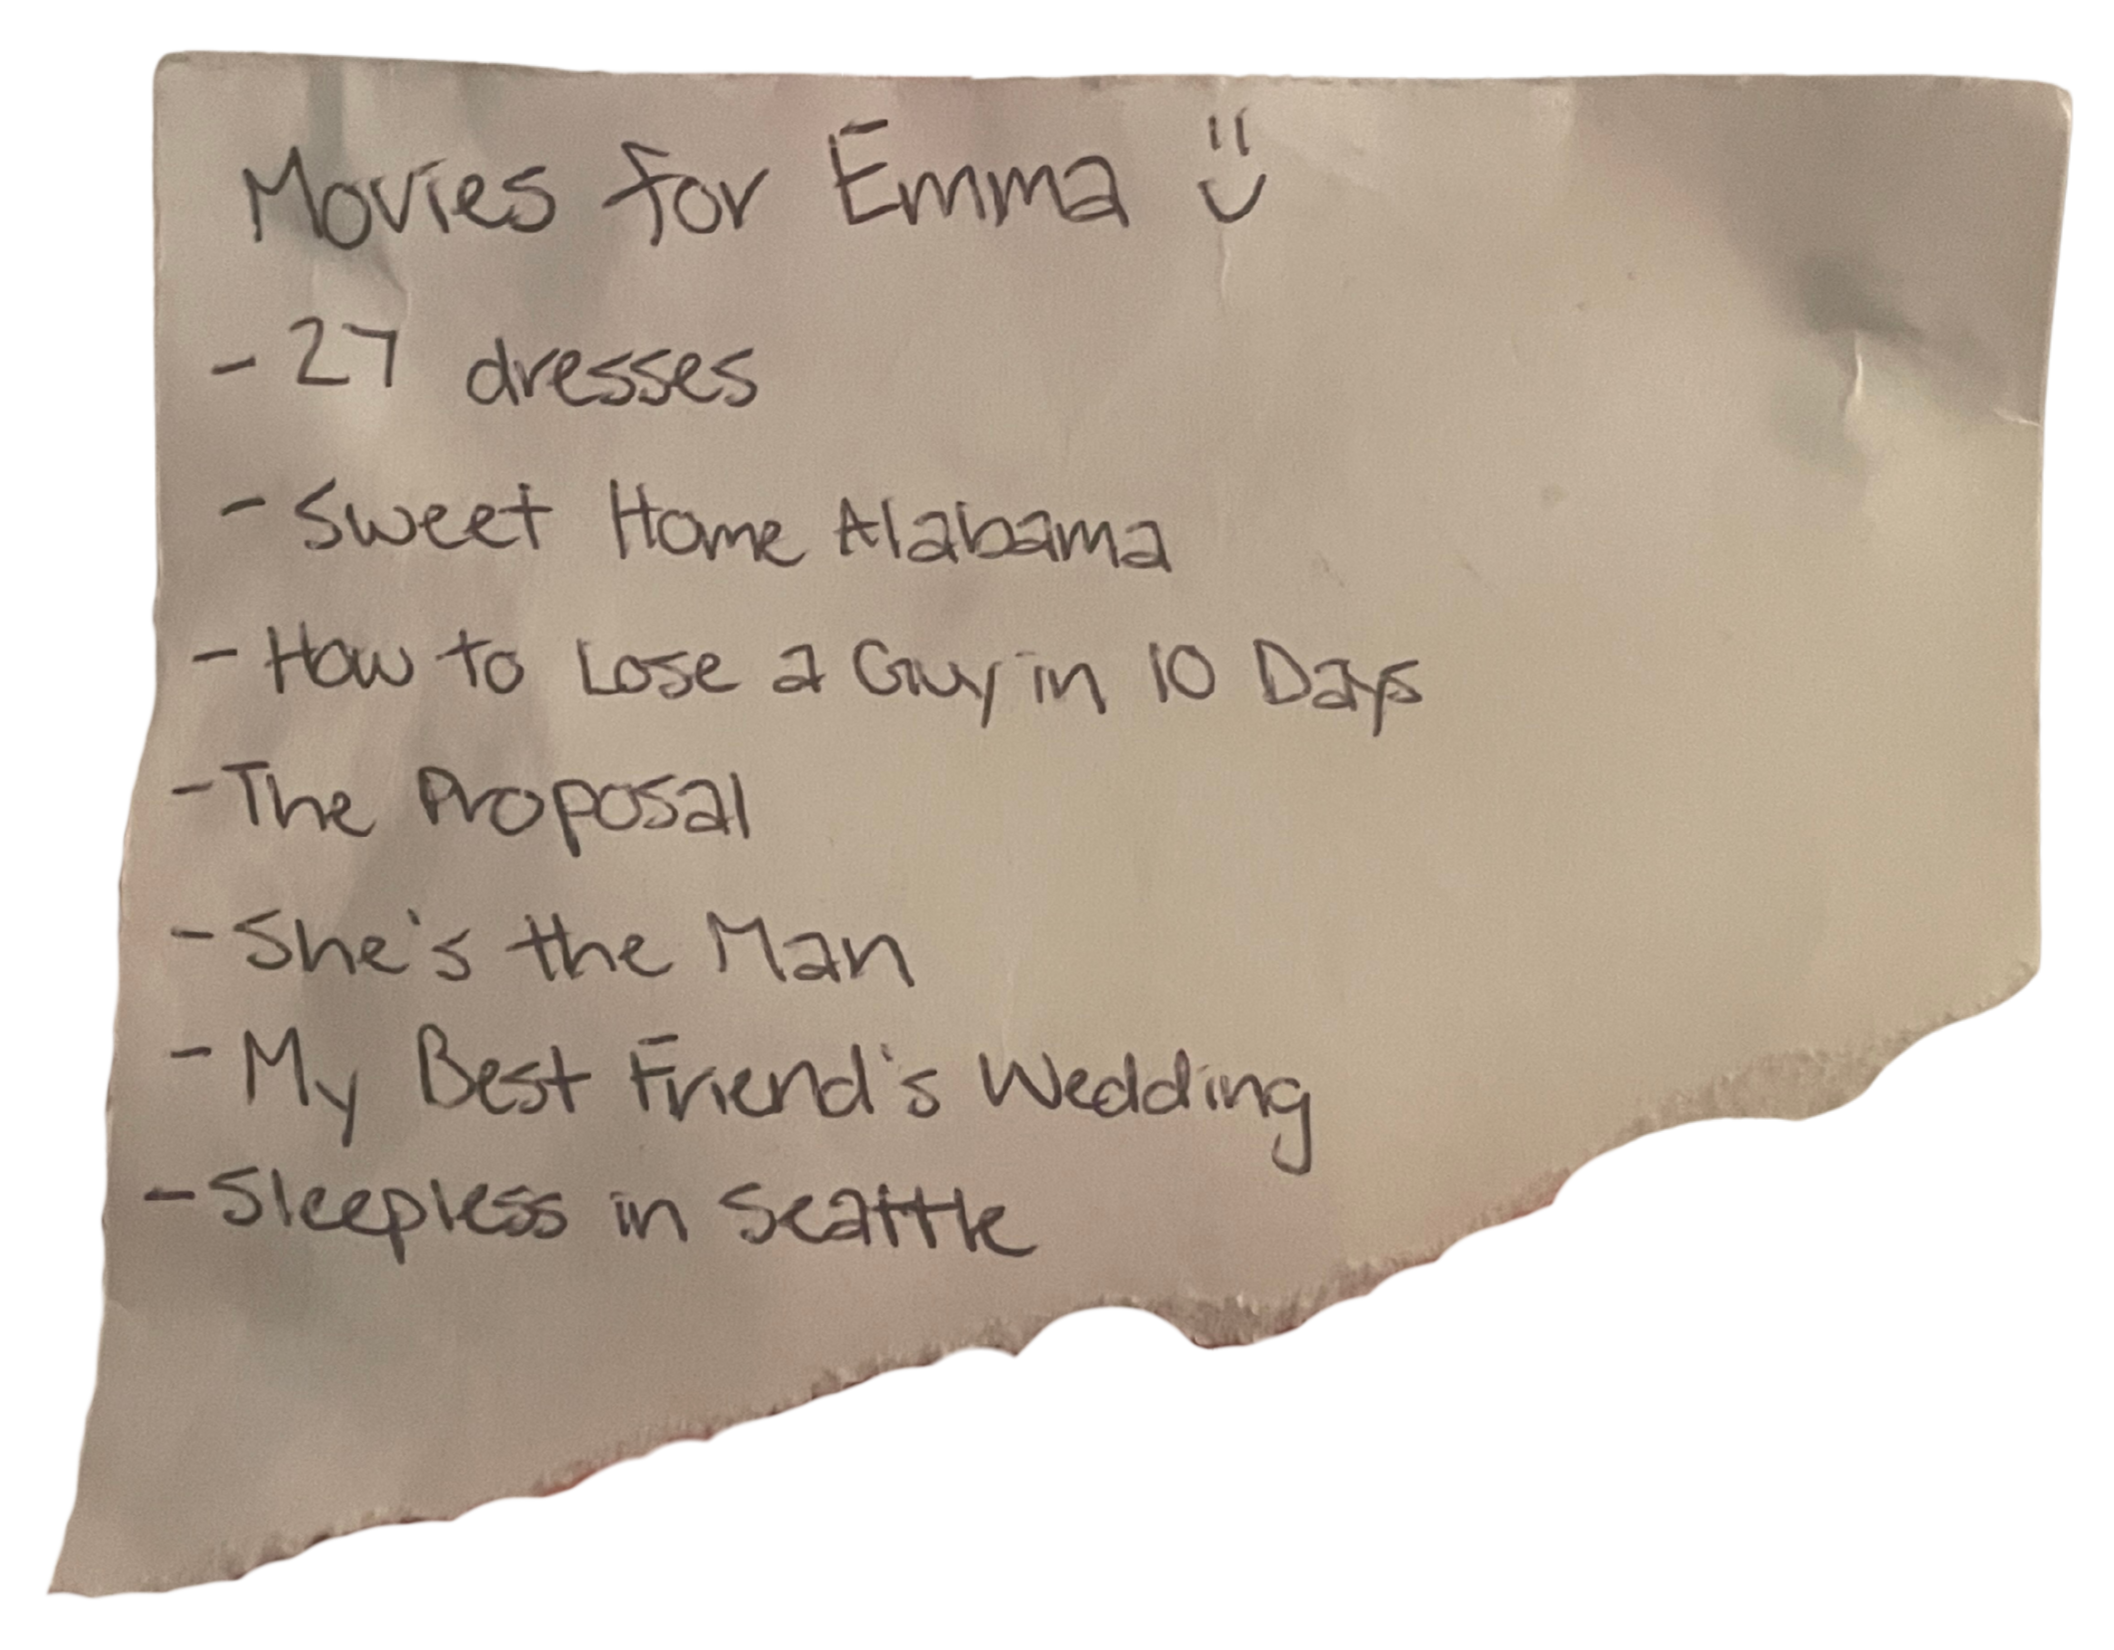 Movies for Emma
- 27 dresses
- Sweet Home Alabama
- How to Lose a Guy in 10 Days
- The Proposal
- She's the Man
- My Best Friend's Wedding
- Sleepless in Seattle